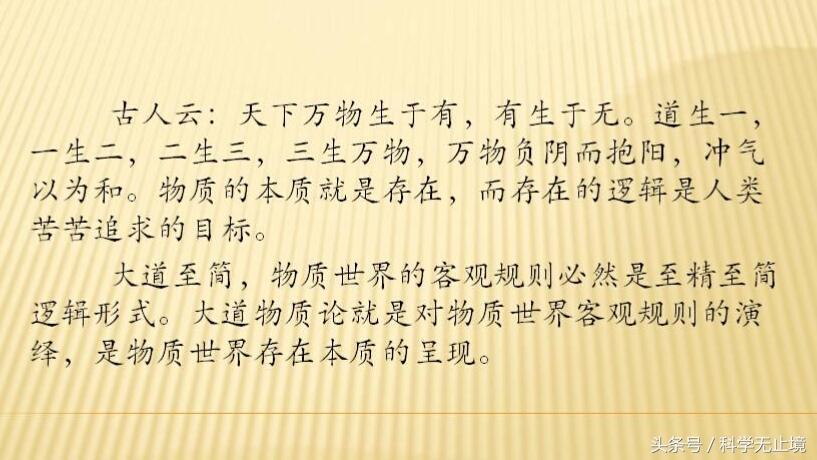 古人云：天下万物生于有，有生于无。道生一，
一生二，二生三，三生万物，万物负阴而抱阳，冲气
以为和。物质的本质就是存在，而存在的逻辑是人类
苦苦追求的目标。
大道至简，物质世界的客观规则必然是至精至简
逻辑形式。大道物质论就是对物质世界客观规则的演
绎，是物质世界存在本质的呈现。
头条号／科学无止境